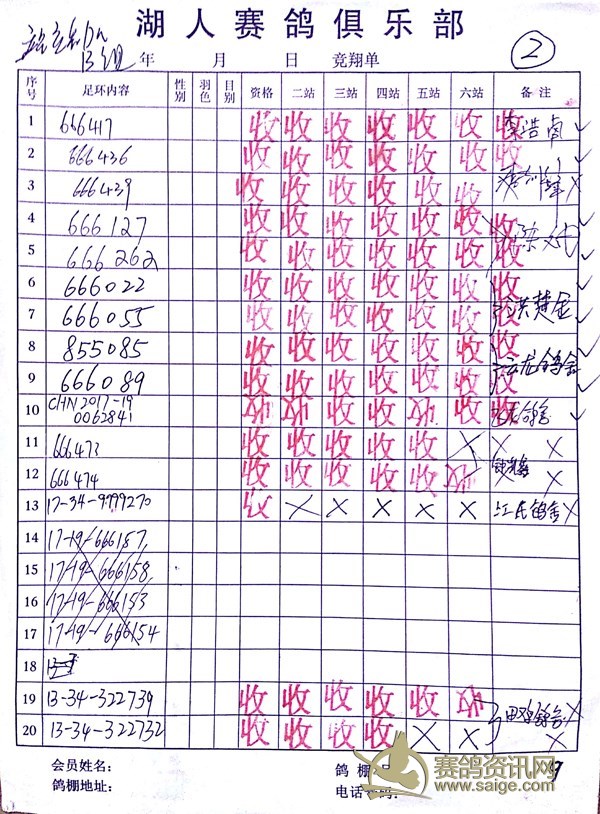 湖人赛鸽俱乐部
13组 年 月 日 竞翔单 ②
序号 足环内容 性别 羽色 目别 资格 二站 三站 四站 五站 六站 备注
1 666417 收 收 收 收 收 收 收 ✓
2 666436 收 收 收 收 收 收 收 ✓
3 666439 收 收 收 收 收 收 X
4 666127 收 收 收 收 收 收 收 ✓
5 666262 收 收 收 收 收 收 收 ✓
6 666022 收 收 收 收 收 收 收 ✓
7 666055 收 收 收 收 收 收 收 ✓
8 855085 收 收 收 收 收 收 收 ✓
9 666089 收 收 收 收 收 收 收 ✓
10 CHN 2017-19 收 收 收 收 收 收 收 ✓
0062841
11 666473 收 收 收 收 收 X X X
12 666474 收 收 收 收 收 收 X X
13 17-34-9799270 收 X X X X X 江氏鸽舍 X
14 17-19-666157
15 17-19-666158
16 17-19-666153
17 17-19-666154
18
19 13-34-322739 收 收 收 收 收 收 X
20 13-34-322732 收 收 收 收 X X X
会员姓名： 鸽棚
鸽棚地址： 电话号码：
赛鸽资讯网
www.saige.com